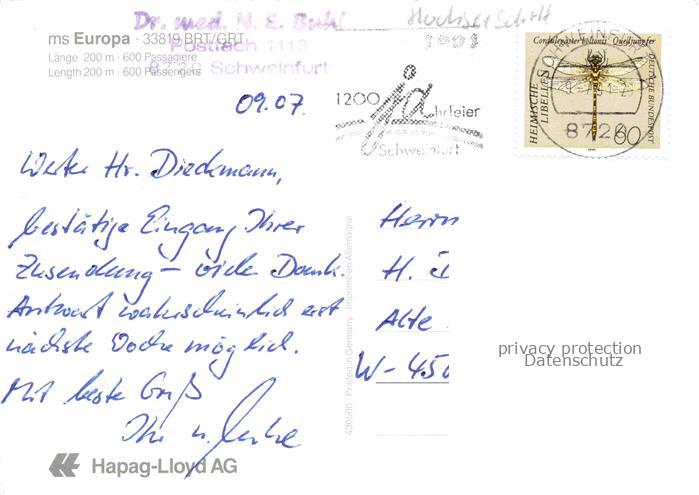 Dr. med. N. E. Buhl
Postfach 1113
8720 Schweinfurt
ms Europa · 33819 BRT/GRT
Länge 200 m · 600 Passagiere
Length 200 m · 600 Passengers
09.07.
1200 jahrfeier
Schweinfurt
Cordulegaster boltonii Quelljungfer
HEIMISCHE LIBELLEN
DEUTSCHE BUNDESPOST
60
SCHWEINFURT
8720
Werter Hr. Dieckmann,
bestätige Eingang Ihrer
Zusendung – vielen Dank.
Antwort wahrscheinlich erst
nächste Woche möglich.
Mit beste Gruß
Ihr
Herrn
H. D
Alte
W-450
430500 Printed in Germany Imprimé en Allemagne
privacy protection
Datenschutz
Hapag-Lloyd AG